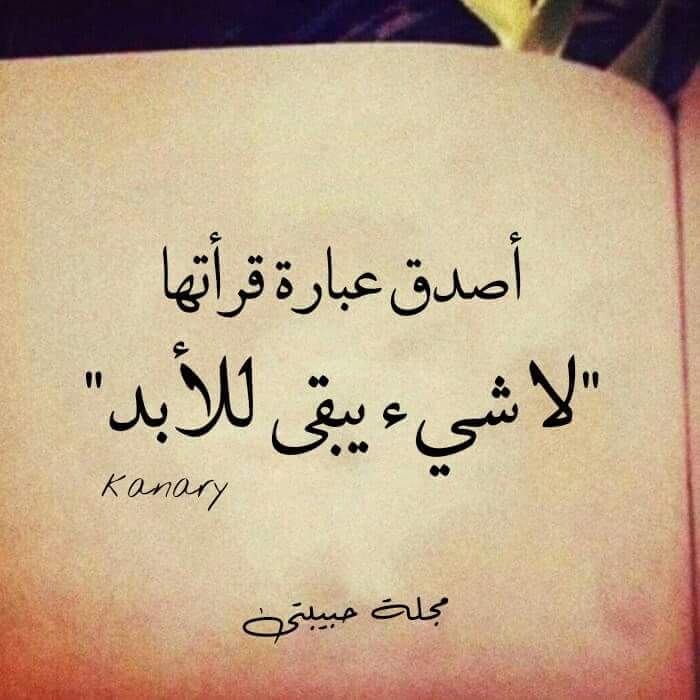 أصدق عبارة قرأتها
"لا شيء يبقى للأبد"
Kanary
مجلة حبيبتي